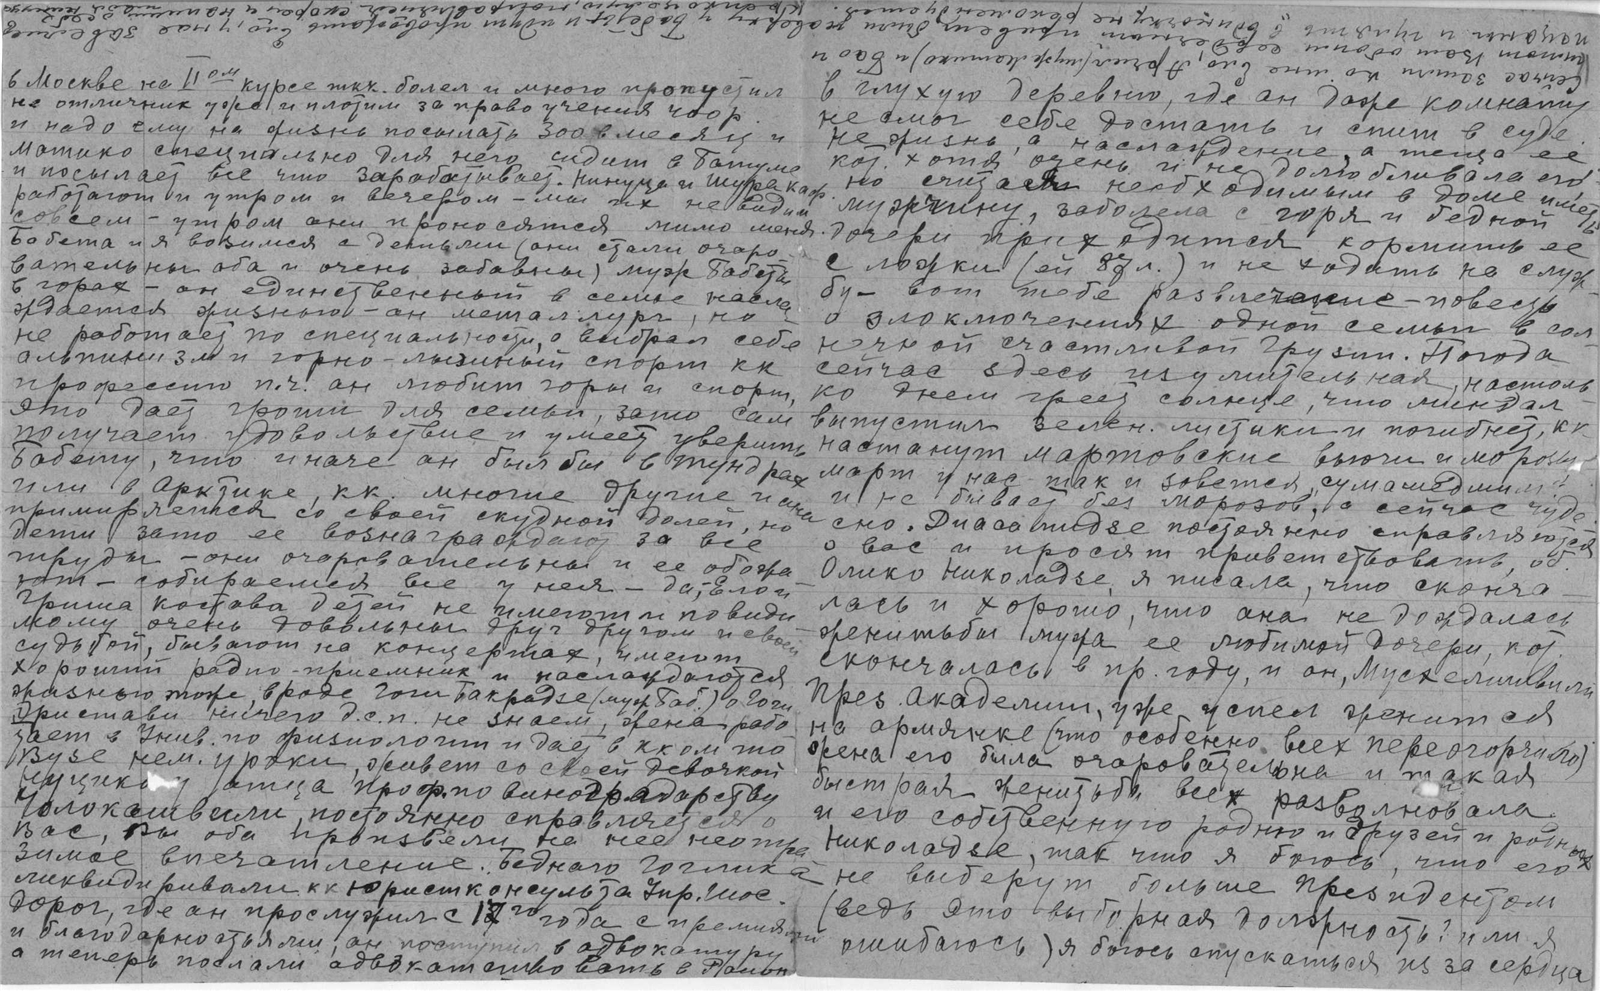 в Москве на II ом курсе ткк. болел и много пропустил
не отличник уже и плотим за право учения 400р.
и надо ему на жизнь посылать 300 в месяц и
Матико специально для него сидит в Батуме
и посылает все что зарабатывает. Нинуца и Шура как
работают и утром и вечером – мы их не видим
совсем – утром они проносятся мимо меня.
Бабета и я возимся с детьми (они стали очаро-
вательны оба и очень забавны) муж Бабеты
в горах – он единственный в семье наслаж
ждается жизнью – он металлург, но
не работает по специальности, а выбрал себе
альпинизм и горно-лыжный спорт кк
профессию п.ч. он любит горы и спорт,
это дает гроши для семьи, зато сам
получает удовольствие и умеет уверить
Бабету, что иначе он был бы в тундрах
или в Арктике, кк. многие другие и она
примиряется со своей скудной долей, но
дети зато ее вознаграждают за все
труды – они очаровательны и ее обожа
ют – собираемся все у нея –
Гриша детей не имеют и повиди
мому очень довольны друг другом и своей
судьбой, бывают на концертах, имеют
хороший радио-приемник и наслаждаются
жизнью тоже, вроде Гоги Бакрадзе (муж Баб.) о Гоги
Эристави ничего д.с.п. не знаем, жена рабо
тает в Унив. по физиологии и дает в кком то
Вузе нем. уроки, живет со своей девочкой
у отца проф. по виноградарству
Чолокашвили, постоянно справляется о
Вас, вы оба произвели на нее неотра
зимое впечатление. Бедного Гоглика
ликвидировали кк юристконсульта Упр. Шос.
дорог, где он прослужил с 17го года с премиями
и благодарностьями, он поступил в адвокатуру
а теперь послали адвокатствовать в район
в глухую деревню, где он даже комнату
не смог себе достать и спит в суде.
не жизнь, а наслаждение, а теща ее
кот. хотя очень и не долюбливала его
но считает необходимым в доме иметь
мужчину, заболела с горя и бедной
дочери приходится кормить ее
с ложки (ей 87 л.) и не ходить на служ-
бу – вот тебе развлечение – повесть
о злоключениях одной семьи в сол
нечной счастливой Грузии. Погода
сейчас здесь изумительная, настоль
ко днем греет солнце, что миндал
выпустил зелен. листики и погибнет, кк
настанут мартовские вьюги и морозы –
март у нас так и зовется, сумасшедший
и не бывает без морозов, а сейчас чуде
сно. Диасамидзе постоянно справляются
о вас и просят приветствовать, об.
Олико Николадзе, я писала, что сконча –
лась и хорошо, что она не дождалась
женитьбы мужа ее любимой дочери, кот.
скончалась в пр. году, и он, Мусхелишвили
През. Академии, уже успел женится
на армянке (что особенно всех переогорчило)
жена его была очаровательна и такая
быстрая женитьба всех разволновала
и его собственную родню и друзей и родных
Николадзе, так что я боюсь, что его
не выберут больше президентом
(ведь это выборная должность? или я
ошибаюсь) я боюсь спускаться из за сердца
Сейчас зашли ко мне Ело, Арчил (муж Матико) и Бао
шлют Вам обоим сердечный привет